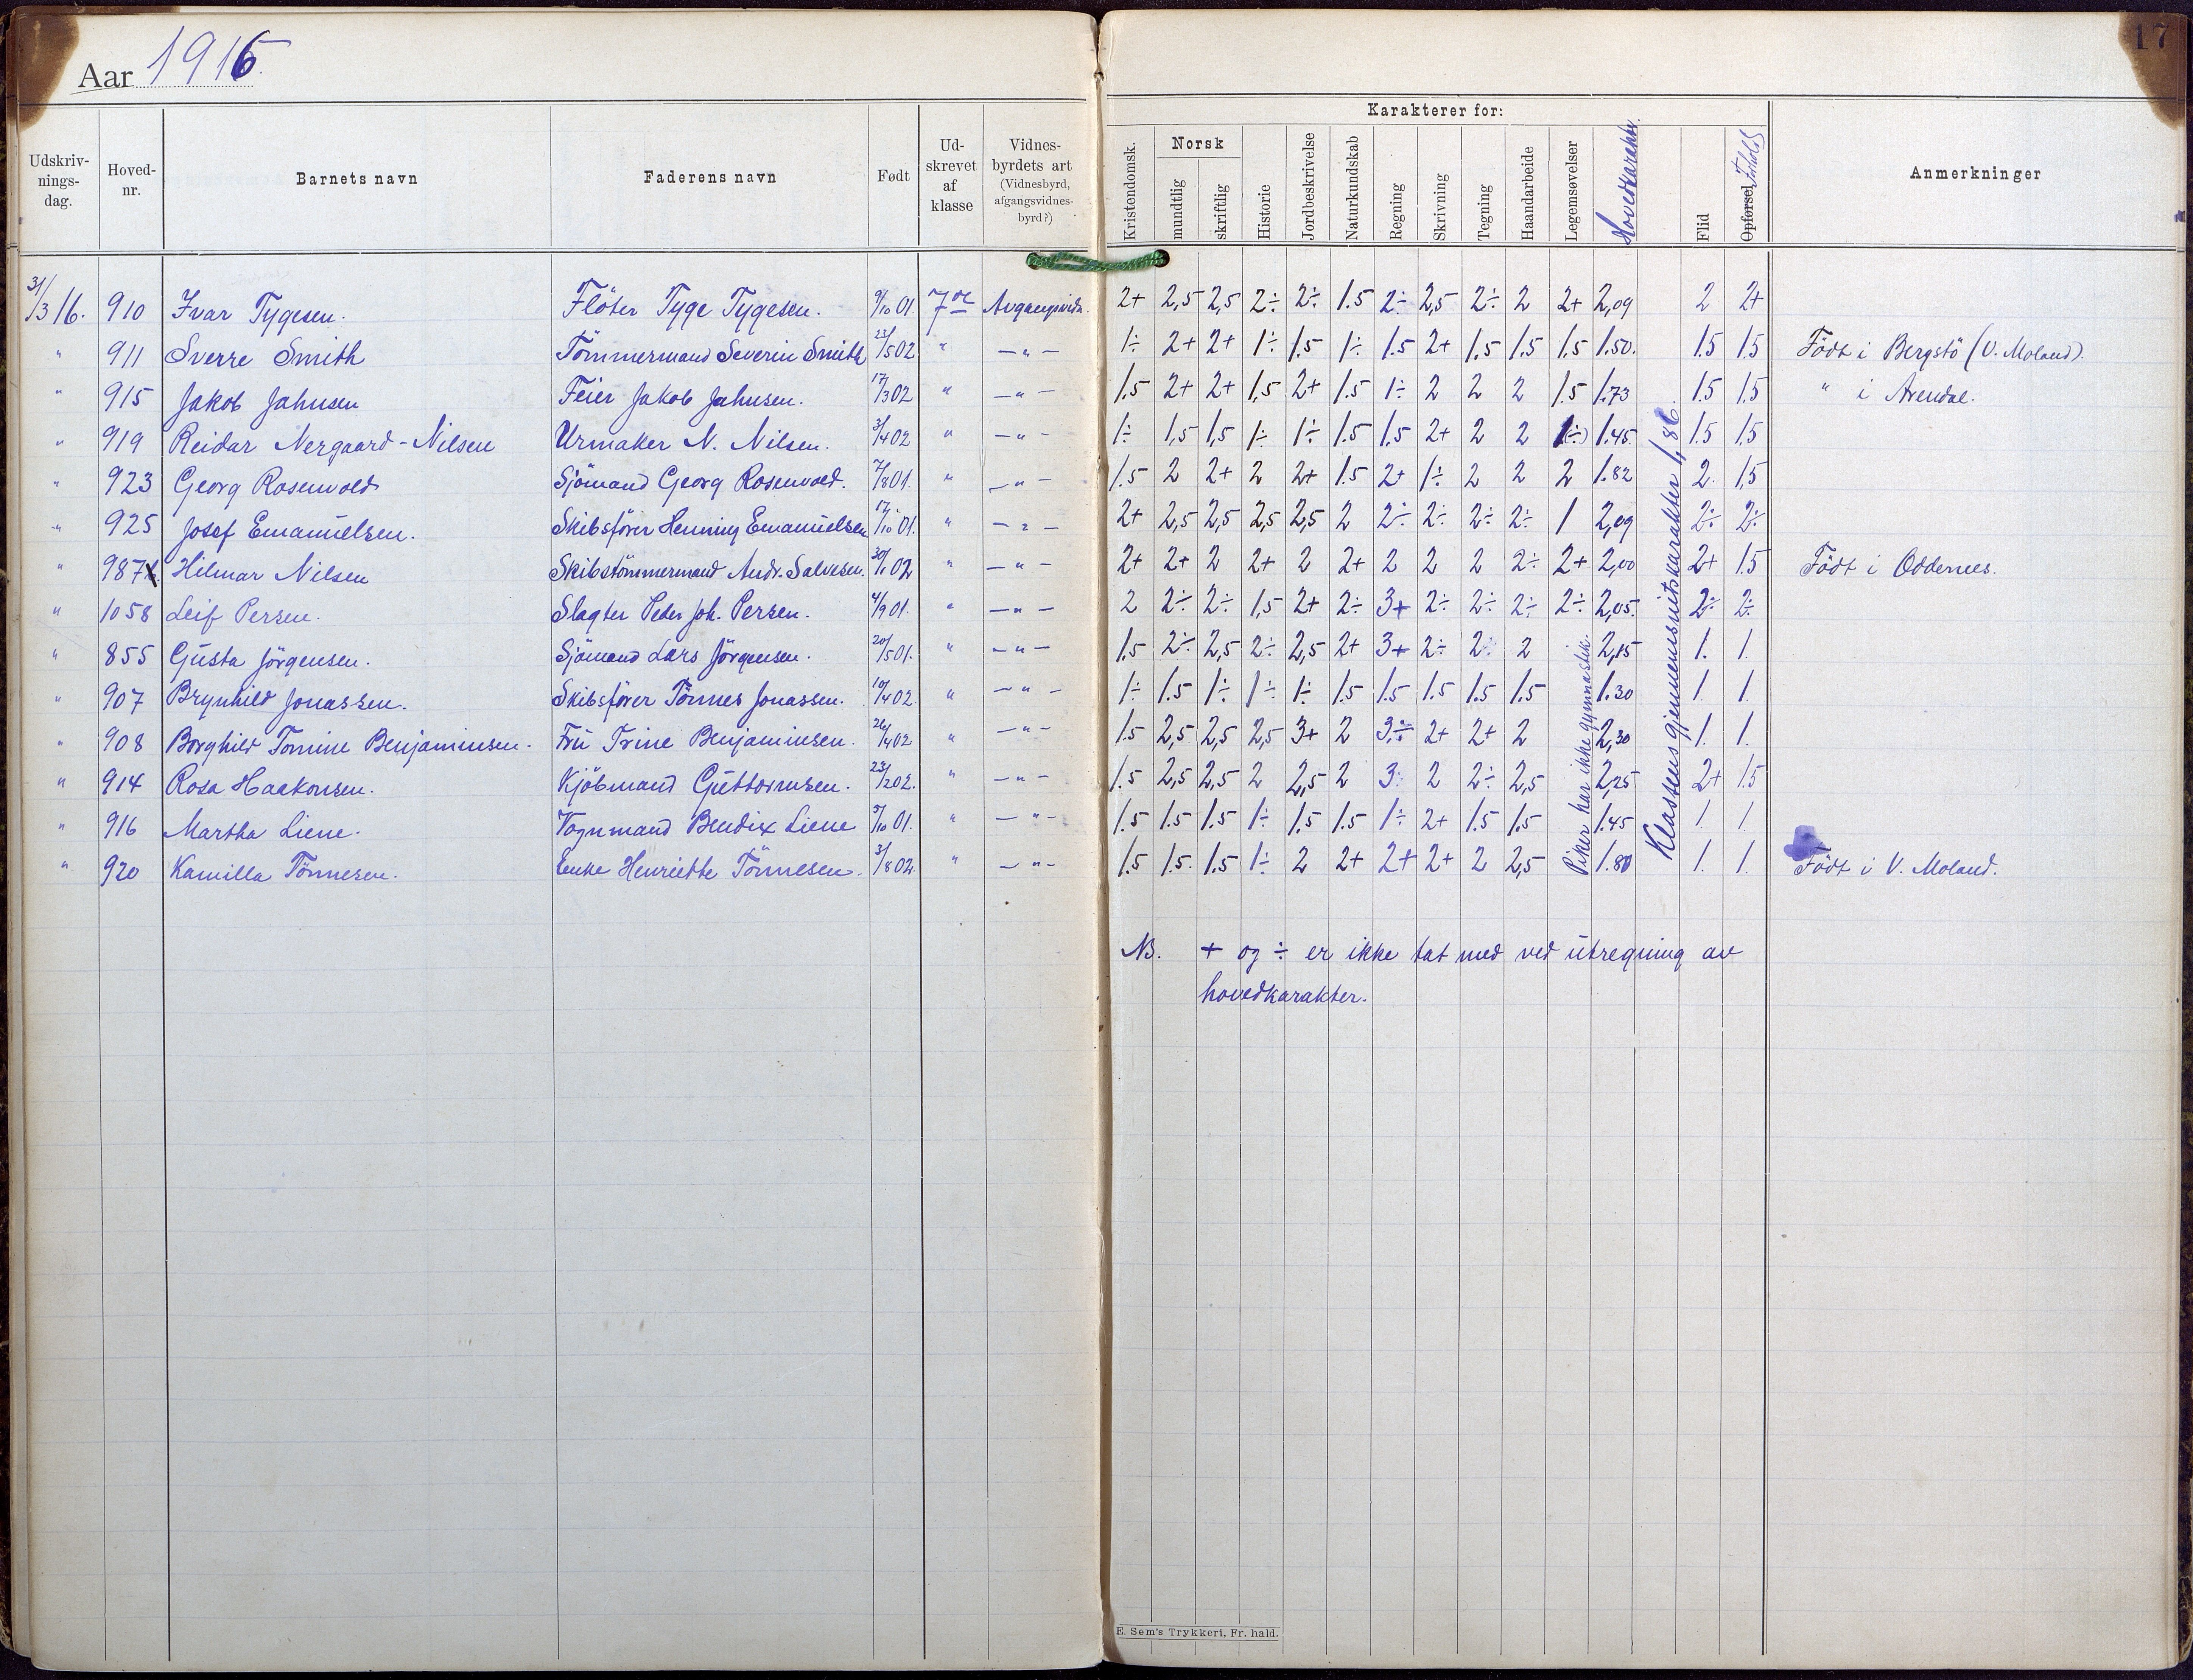 Aar 1916.
17
Karakterer for:
Udskriv-
nings-
dag.
Hoved-
nr.
Barnets navn
Faderens navn
Født
Ud-
skrevet
af
klasse
Vidnes-
byrdets art
(Vidnesbyrd,
afgangsvidnes-
byrd?)
Kristendomsk.
Norsk
mundtlig
skriftlig
Historie
Jordbeskrivelse
Naturkundskab
Regning
Skrivning
Tegning
Haandarbeide
Legemsøvelser
Hovedkarakter.
Flid
Opførsel Forhold
Anmerkninger
31/3 16. 910 Ivar Tygesen. Flöter Tyge Tygesen. 9/10 01. 7de Avgangsvidn. 2+ 2,5 2,5 2÷ 2÷ 1.5 2÷ 2,5 2÷ 2 2+ 2,09 2 2+
" 911 Sverre Smith Tömmermand Severin Smith 23/5 02 " -"- 1÷ 2+ 2+ 1÷ 1.5 1÷ 1.5 2+ 1.5 1.5 1.5 1.50. 1.5 1.5 Födt i Bergstö (V. Moland).
" 915 Jakob Jahnsen Feier Jakob Jahnsen. 17/3 02 " -"- 1.5 2+ 2+ 1,5 2+ 1.5 1÷ 2 2 2 1.5 1.73 1.5 1.5 " i Arendal.
" 919 Reidar Nergaard-Nilsen Urmaker N. Nilsen. 3/4 02 " -"- 1÷ 1,5 1,5 1÷ 1÷ 1.5 1.5 2+ 2 2 1(÷) 1.45. 1.5 1.5
" 923 Georg Rosenvold Sjömand Georg Rosenvold. 7/8 01. " -"- 1.5 2 2+ 2 2+ 1.5 2+ 1÷ 2 2 2 1.82 2. 1,5
" 925 Josef Emanuelsen. Skibsförer Henning Emanuelsen 17/10 01. " -"- 2+ 2,5 2,5 2,5 2,5 2 2÷ 2÷ 2÷ 2÷ 1 2,09 2÷ 2÷
" 987 Hilmar Nilsen Skibstömmermand Andr. Salvesen. 30/1 02 " -"- 2+ 2+ 2 2+ 2 2+ 2 2 2 2÷ 2+ 2,00 2+ 1.5 Födt i Oddernes.
" 1058 Leif Persen. Slagter Peder Joh. Persen. 4/9 01. " -"- 2 2÷ 2÷ 1,5 2+ 2÷ 3+ 2÷ 2÷ 2÷ 2÷ 2,05. 2÷ 2÷
" 855 Gusta Jörgensen. Sjömand Lars Jörgensen. 20/5 01. " -"- 1.5 2÷ 2,5 2÷ 2,5 2+ 3+ 2÷ 2÷ 2 2,15 1. 1.
" 907 Brynhild Jonassen. Skibsförer Tönnes Jonassen. 10/4 02. " -"- 1÷ 1.5 1÷ 1÷ 1÷ 1.5 1.5 1.5 1.5 1.5 1.30 1. 1.
" 908 Borghild Tomine Benjaminsen. Fru Trine Benjaminsen. 26/4 02 " -"- 1.5 2,5 2,5 2,5 3+ 2 3÷ 2+ 2+ 2 2,30 1. 1.
" 914 Rosa Haakonsen. Kjöbmand Guttormsen. 23/2 02. " -"- 1.5 2,5 2,5 2 2,5 2 3÷ 2 2÷ 2,5 2,25 2+ 1.5
" 916 Martha Liene. Vognmand Bendix Liene 9/10 01. " -"- 1.5 1.5 1.5 1÷ 1.5 1.5 1÷ 2+ 1.5 1.5 1.45 1. 1.
" 920 Kamilla Tönnesen. Enke Henriette Tönnesen. 3/8 02. " -"- 1.5 1.5. 1.5 1÷ 2 2+ 2+ 2+ 2 2,5 1.80 1. 1. Födt i V. Moland.
Piker har ikke gymnastik.
Klassens gjennemsnitskarakter 1,86.
NB. + og ÷ er ikke tat med ved utregning av
hovedkarakter.
E. Sem's Trykkeri, Fr. hald.